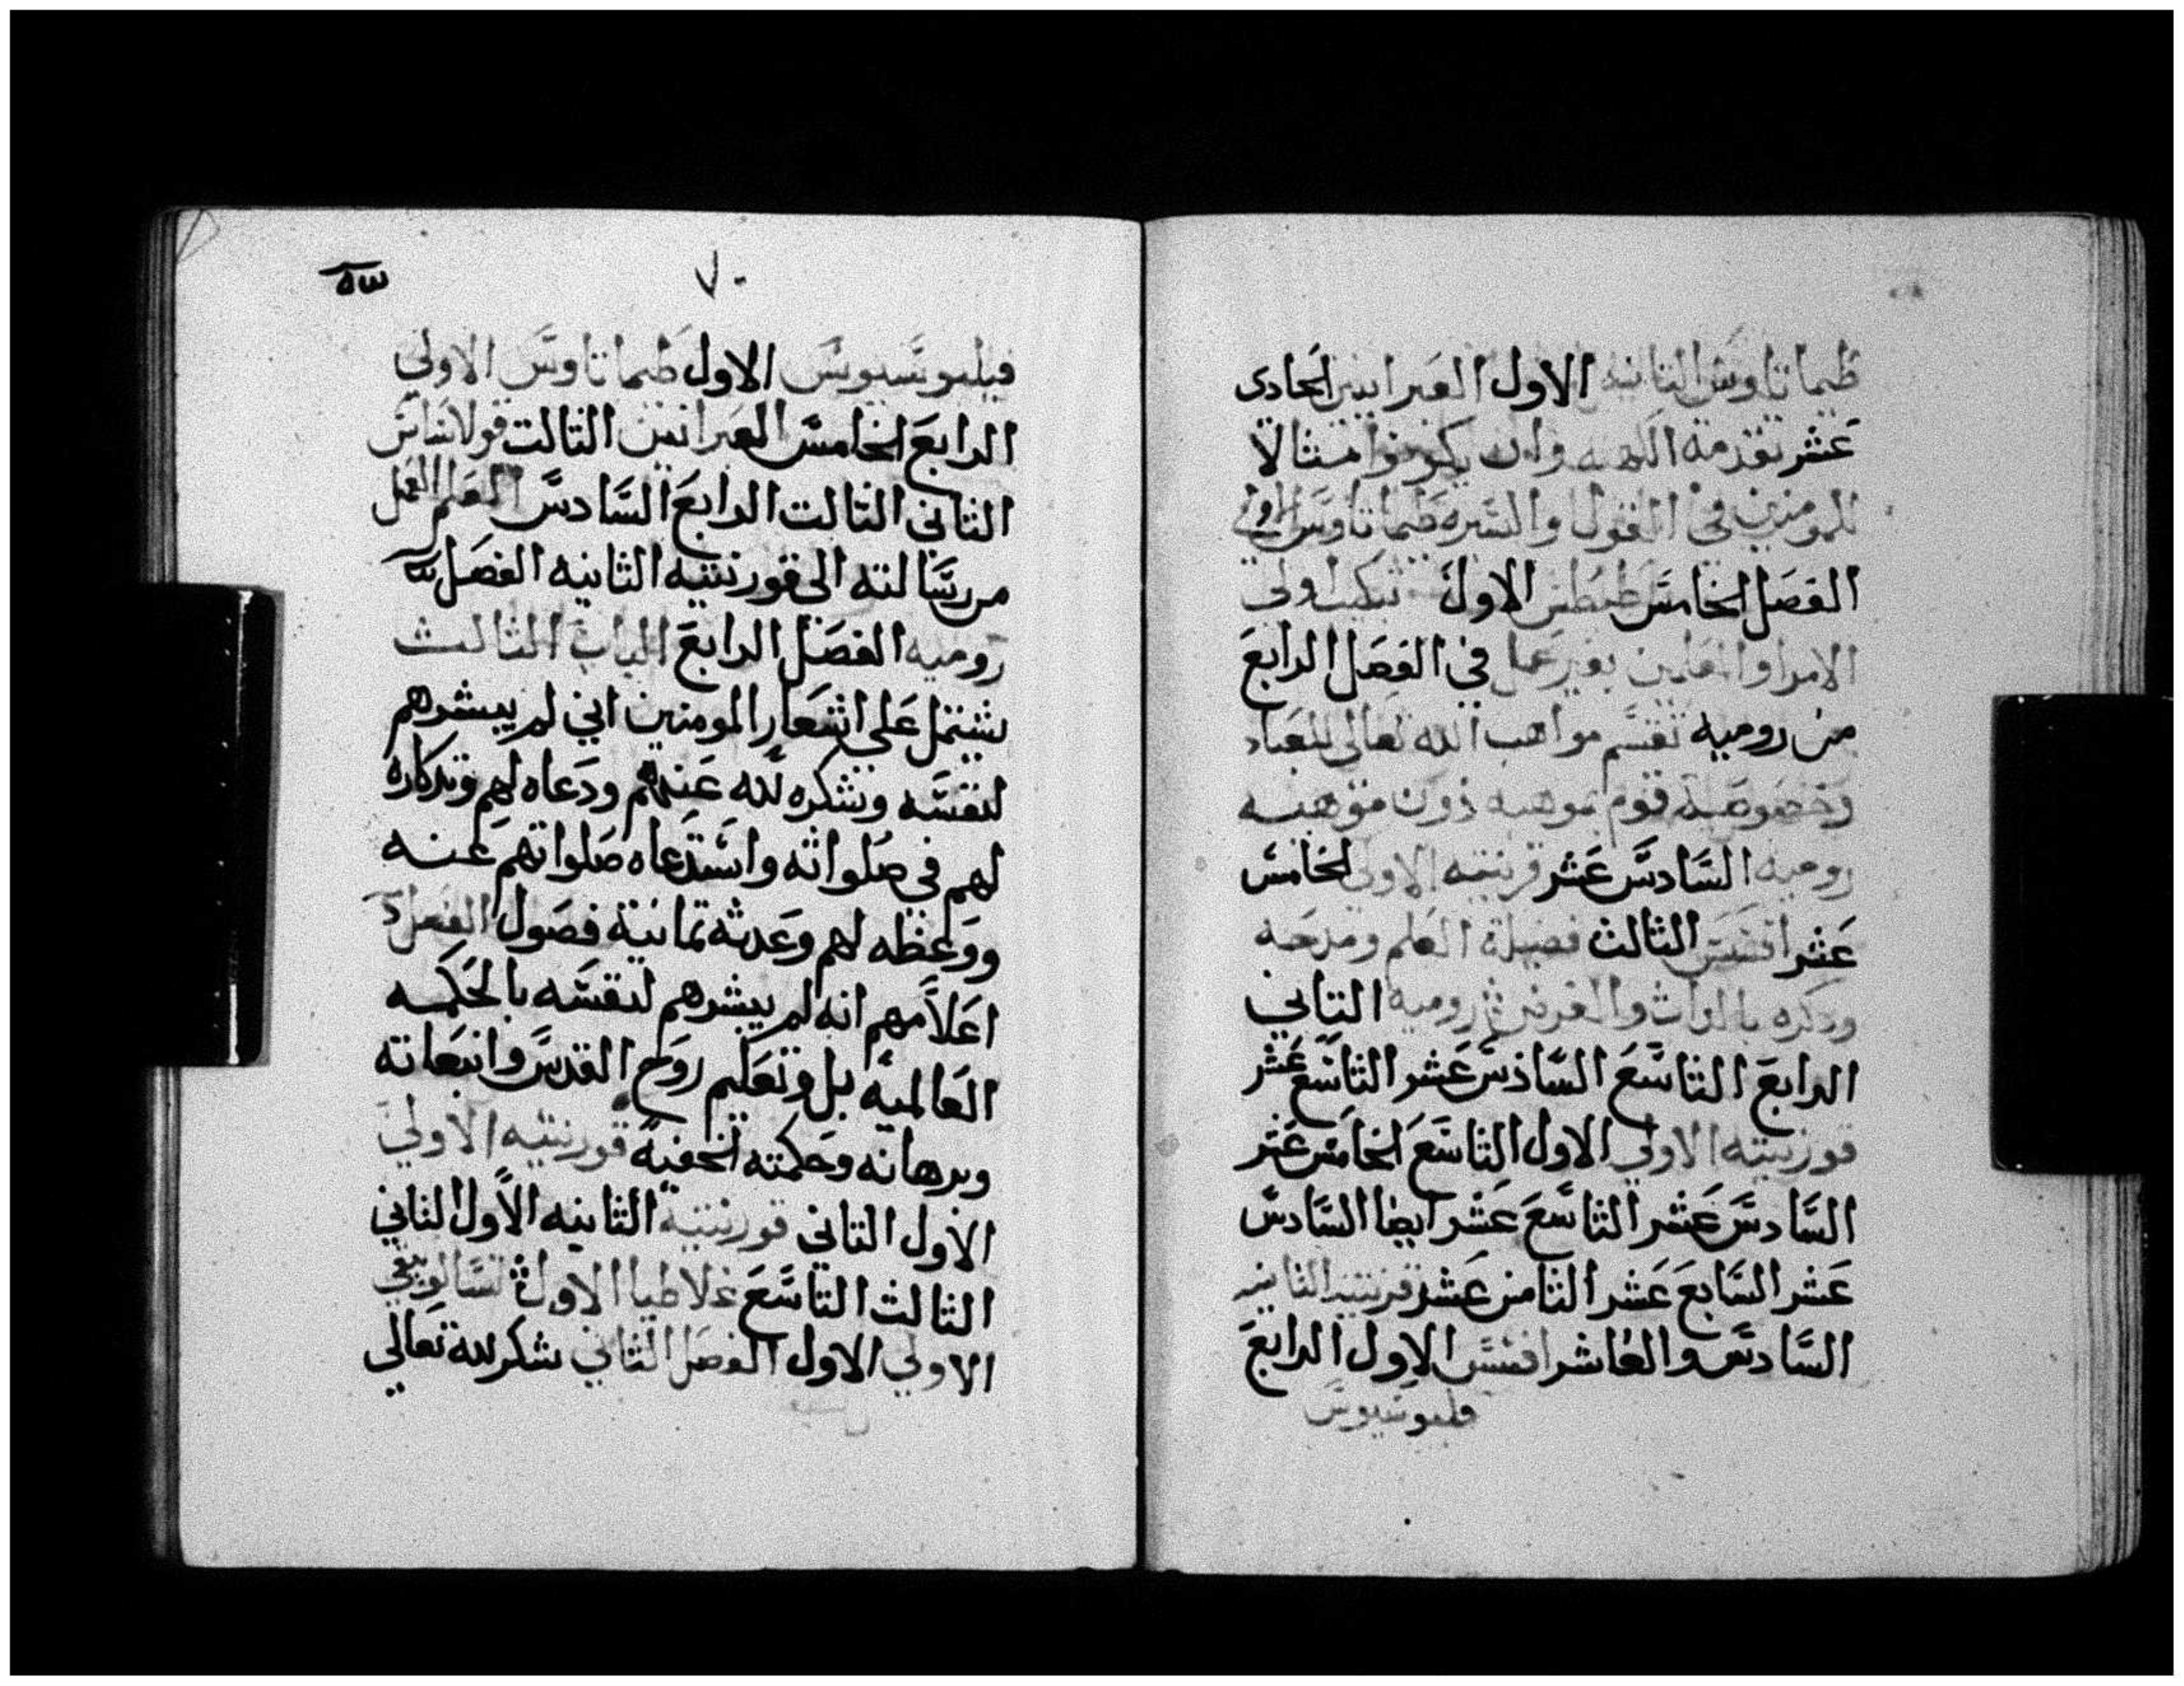 طيماتاوس الثانيه الاول العبرانيين الحادى
عشر تقدمة الكهنه وان يكونوا مثالا
للمومنين في القول والسيره طيماتاوس الاولي
الفصل الخامس طيطس الاول تبكيت اولي
الامر والمعلمين بغير عمل في الفصل الرابع
من روميه تقسم مواهب الله تعالى للعباد
وخصوصية قوم بموهبه دون موهبه
روميه السادس عشر قرنتيه الاولي الخامس
عشر افسس الثالث فضيلة العلم ومدحه
وذكره بالتراث والفرض روميه التاني
الرابع التاسع السادس عشر التاسع عشر
قورنتيه الاولي الاول التاسع الخامس عشر
السادس عشر التاسع عشر ايضا السادس
عشر السابع عشر الثامن عشر قرنتيه الثانيه
السادس والعاشر افسس الاول الرابع
فليبوسيوس
٧٠
فيلبوسيوس الاول طيماتاوس الاولي
الرابع الخامس العبرانيين التالت قولاساس
الثاني التالت الرابع السادس العلم العمل
من رسالته الى قورنتيه الثانيه الفصل
روميه الفصل الرابع الباب الثالث
يشتمل على اشعار المومنين اني لم يبشرهم
لنفسه وشكره لله عنهم ودعاه لهم وتذكاره
لهم في صلواته واستدعاه صلواتهم عنه
ووعظه لهم وعدته تمانية فصول الفصل
اعلامهم انه لم يبشرهم لنفسه بالحكمه
العالميه بل وتعليم روح القدس وانبعاته
وبرهانه وحكمته الخفية قورنتيه الاولي
الاول التاني قورنتية الثانيه الاول الثاني
الثالث التاسع غلاطيا الاول تسالونيقي
الاولي الاول الفصل الثاني شكر لله تعالى